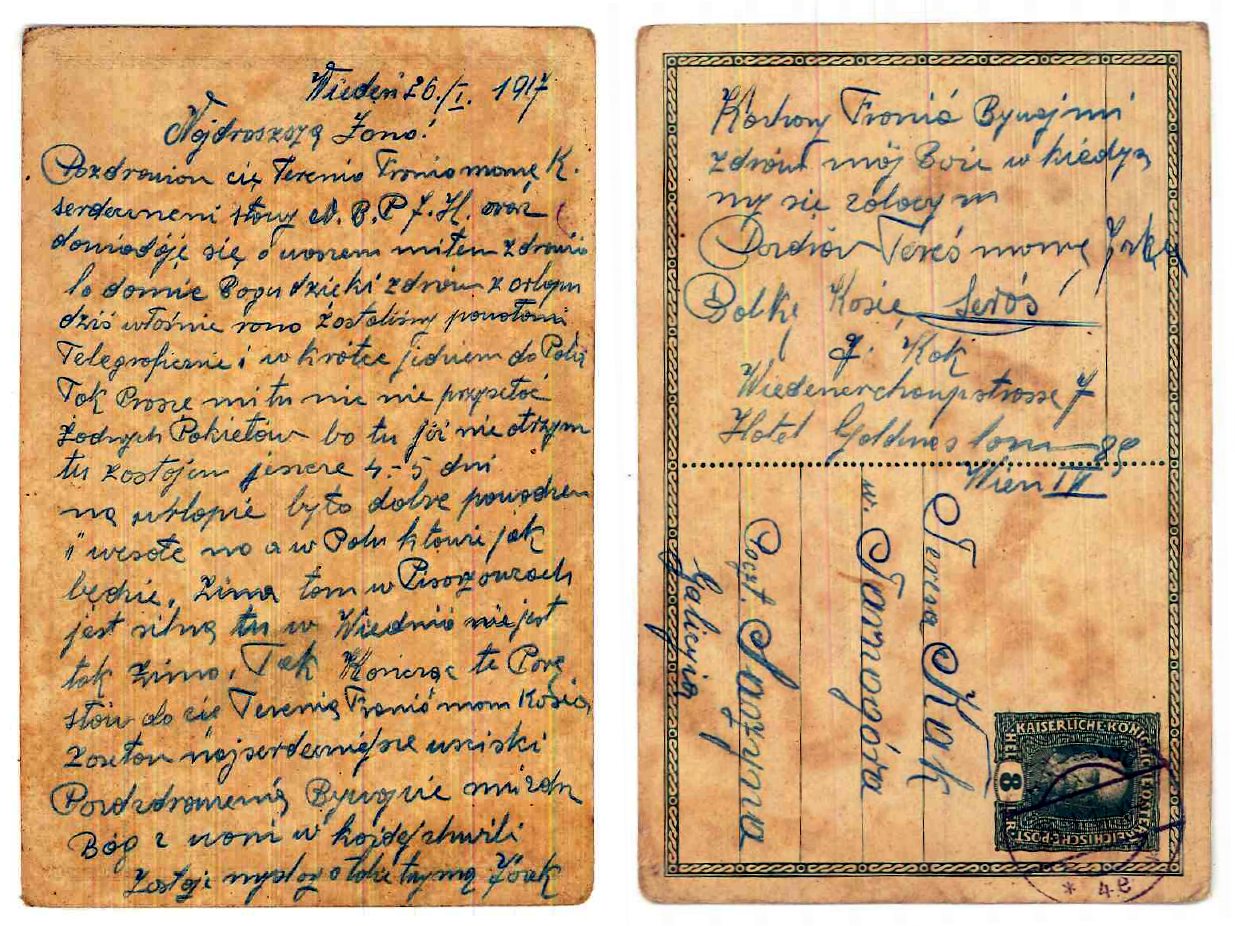 Wiedeń 26./I. 1917
Najdroszszą Żono!
Pozdrowion cię Terenia Fronia momę K.
serdecznemi słowy N. B. P. J. H. oraz
dowiadóję się o waszem miłem zdrowió
domie Bogu dzieki zdrów z orlopu
dziś włośnie rono zostaliśmy powołani
Telegroficznie i w krótce jedziem do Polu
Tok Prosze mi tu nic nie przysełoć
żodnych Pokietów bo tu jóż nie otrzym
tu zostojem jeszcze 4-5 dni
ną urlopie było dobrze powodzen
i wesołe no a w Polu któwi jak
będzie, Zimą tom w Pisorzowach
jest silną tu w Wiednió nie jest
tok zimo, Tak Kończąc te Porę
słów do cię Terenią Fronió mom Kosią
Zosełom najserdeczniejsze usciski
Pozdrowienią Bywojcie mi zdr
Bóg z womi w kożdej chwili
Zostoje Józek
Kochony Froniá Bywoj mi
zdrów mój Boże w kiedyż
my się zoboczym
Pozdrów Tereś momę
Bolkę Kosię
J. Kok
Wiedenerchoupstrosse 7
Hotel Goldnes
Wien IV
Teresa Kak
w. Tarnogóra
Poczt. Sarzyna
Galicyia
KAISERLICHE KÖNIGLICHE ÖSTERREICHISCHE POST
8
* 4e